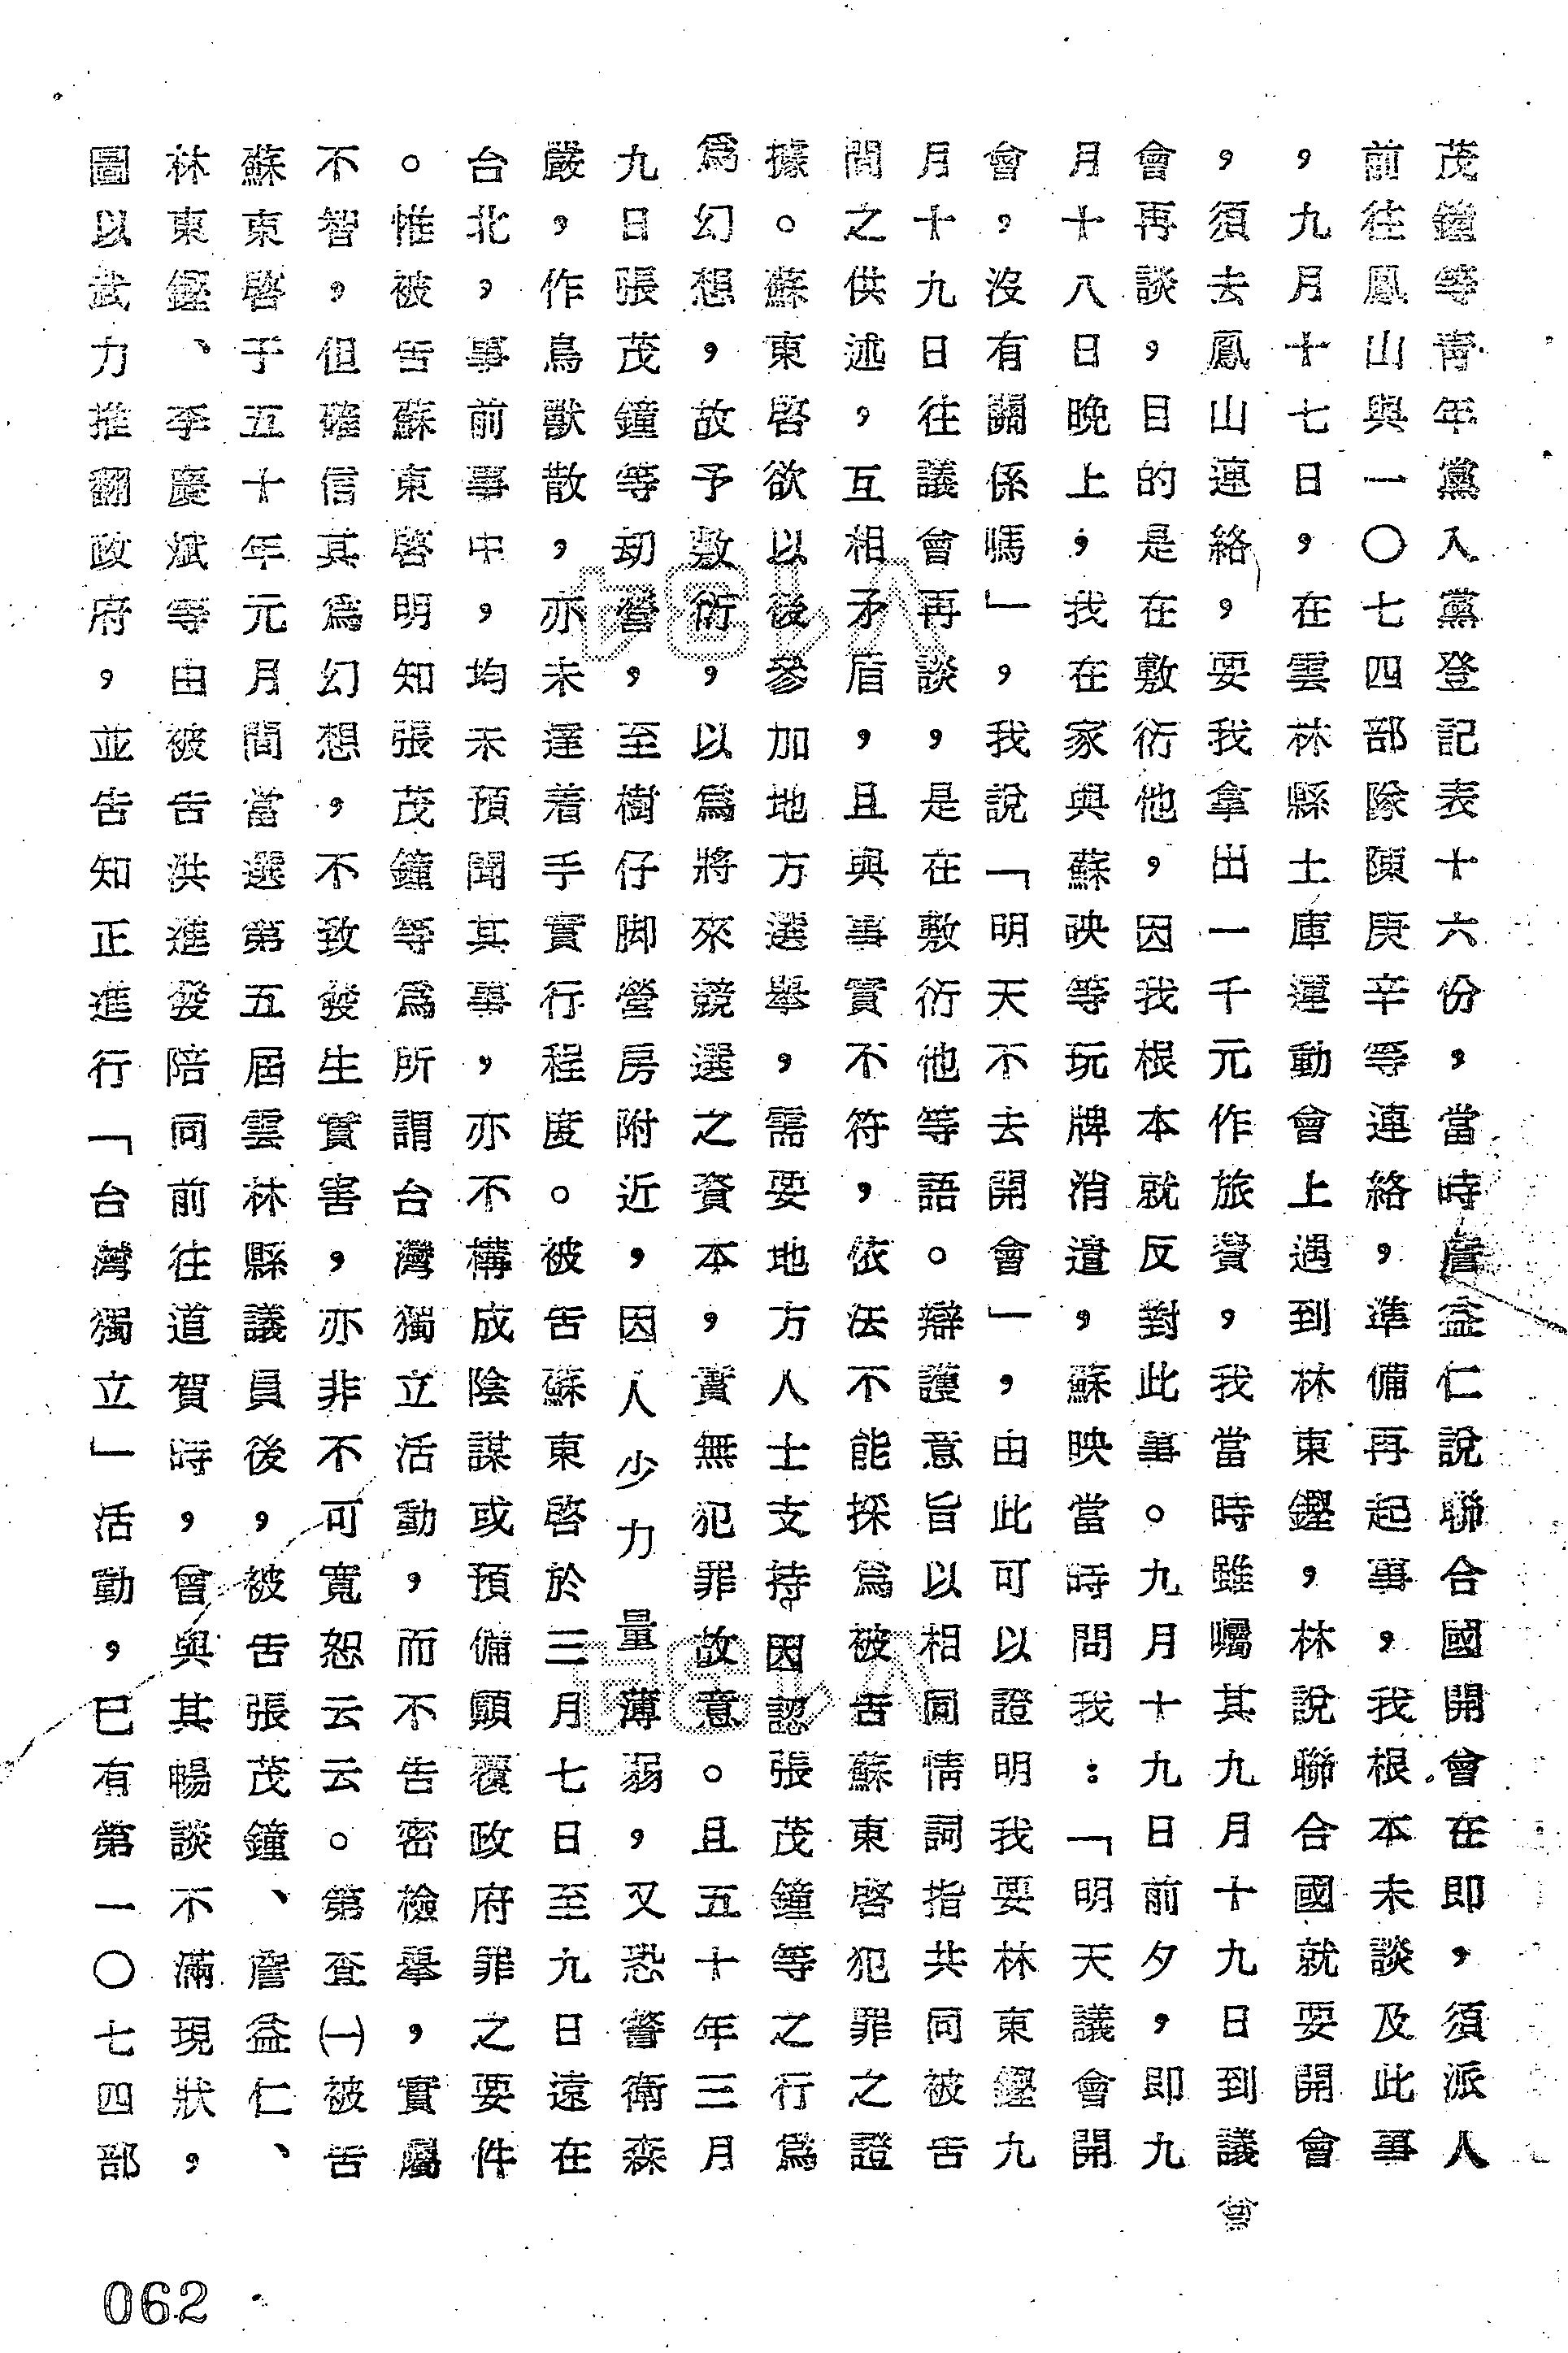 茂鐘等青年黨入黨登記表十六份，當時詹益仁說聯合國開會在即，須派人
前往鳳山與一〇七四部隊陳庚辛等連絡，準備再起事，我根本未談及此事
，九月十七日，在雲林縣土庫運動會上遇到林東鏗，林說聯合國就要開會
，須去鳳山連絡，要我拿出一千元作旅費，我當時雖囑其九月十九日到議會
會再談，目的是在敷衍他，因我根本就反對此事。九月十九日前夕，即九
月十八日晚上，我在家與蘇映等玩牌消遣，蘇映當時問我：「明天議會開
會，沒有關係嗎」，我說「明天不去開會」，由此可以證明我要林東鏗九
月十九日往議會再談，是在敷衍他等語。辯護意旨以相同情詞指共同被告
間之供述，互相矛盾，且與事實不符，依法不能採為被告蘇東啓犯罪之證
據。蘇東啓欲以後參加地方選舉，需要地方人士支持因認張茂鐘等之行為
為幻想，故予敷衍，以為將來競選之資本，實無犯罪故意。且五十年三月
九日張茂鐘等劫營，至樹仔脚營房附近，因人少力量薄弱，又恐警衛森
嚴，作鳥獸散，亦未達着手實行程度。被告蘇東啓於三月七日至九日遠在
台北，事前事中，均未預聞其事，亦不構成陰謀或預備顚覆政府罪之要件
。惟被告蘇東啓明知張茂鐘等為所謂台灣獨立活動，而不告密檢舉，實屬
不智，但確信其為幻想，不致發生實害，亦非不可寬恕云云。第查㈠被告
蘇東啓于五十年元月間當選第五屆雲林縣議員後，被告張茂鐘、詹益仁、
林東鏗、李慶斌等由被告洪進發陪同前往道賀時，曾與其暢談不滿現狀，
圖以武力推翻政府，並告知正進行「台灣獨立」活動，已有第一〇七四部
062